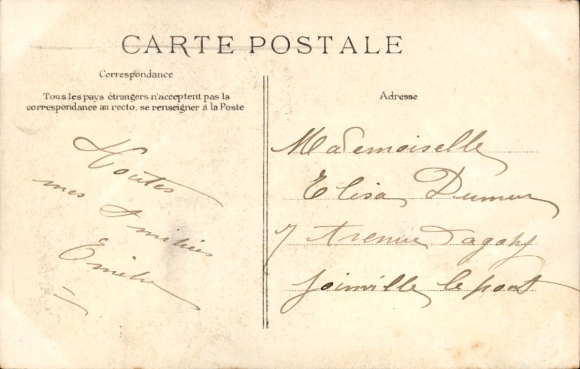 CARTE POSTALE
Correspondance
Tous les pays étrangers n'acceptent pas la
correspondance au recto, se renseigner à la Poste
Toutes
mes Amitiés
Emile
Adresse
Mademoiselle
Elisa
7 Avenue
Joinville le pont